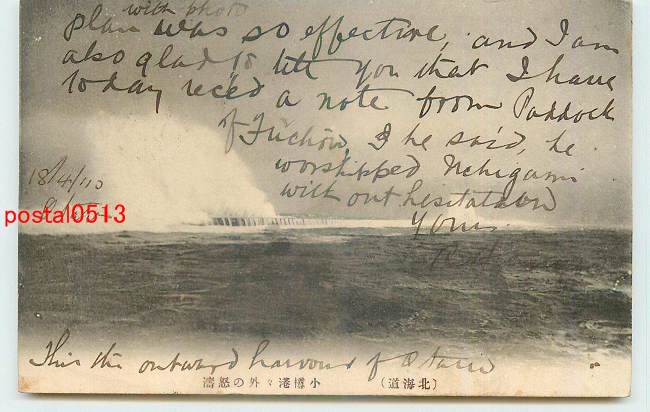 with photo
plan was so effective, and I am
also glad to tell you that I have
to day rec'ed a note from Paddock
of Fuchow, I he said, he
worshipped Uchigami
with out hesitation
Yours
18/4/10
postal0513
This the outward harvour of Otaru
小樽港々外の怒濤 （北海道）